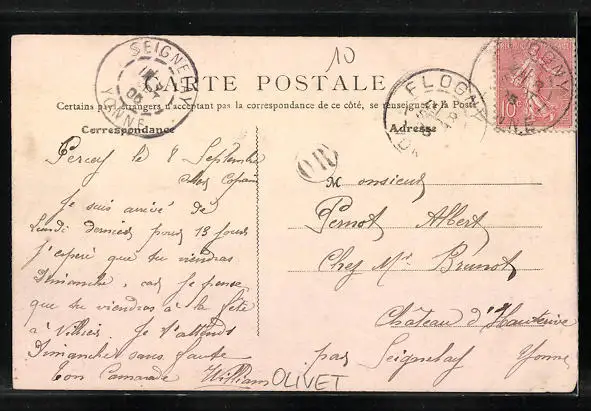 10
SEIGNELAY
YONNE
06
CARTE POSTALE
FLOGNY
FLOGNY
10c
Certains pays étrangers n'acceptant pas la correspondance de ce côté, se renseigner à la Poste
Correspondance
Adresse
OR
Percey le 8 Septembre
Mon Copain
Je suis arrivé de
Lundi dernier pour 15 jours
j'esperé que tu viendras
Dimanche, car je pense
que tu viendras à la fête
à Villiers Je t'attends
Dimanche sans faute
ton Camarade William
OLIVET
Monsieur
Pernot Albert
Chez Mr Brunot
Château d'Hauterive
par Seignelay Yonne